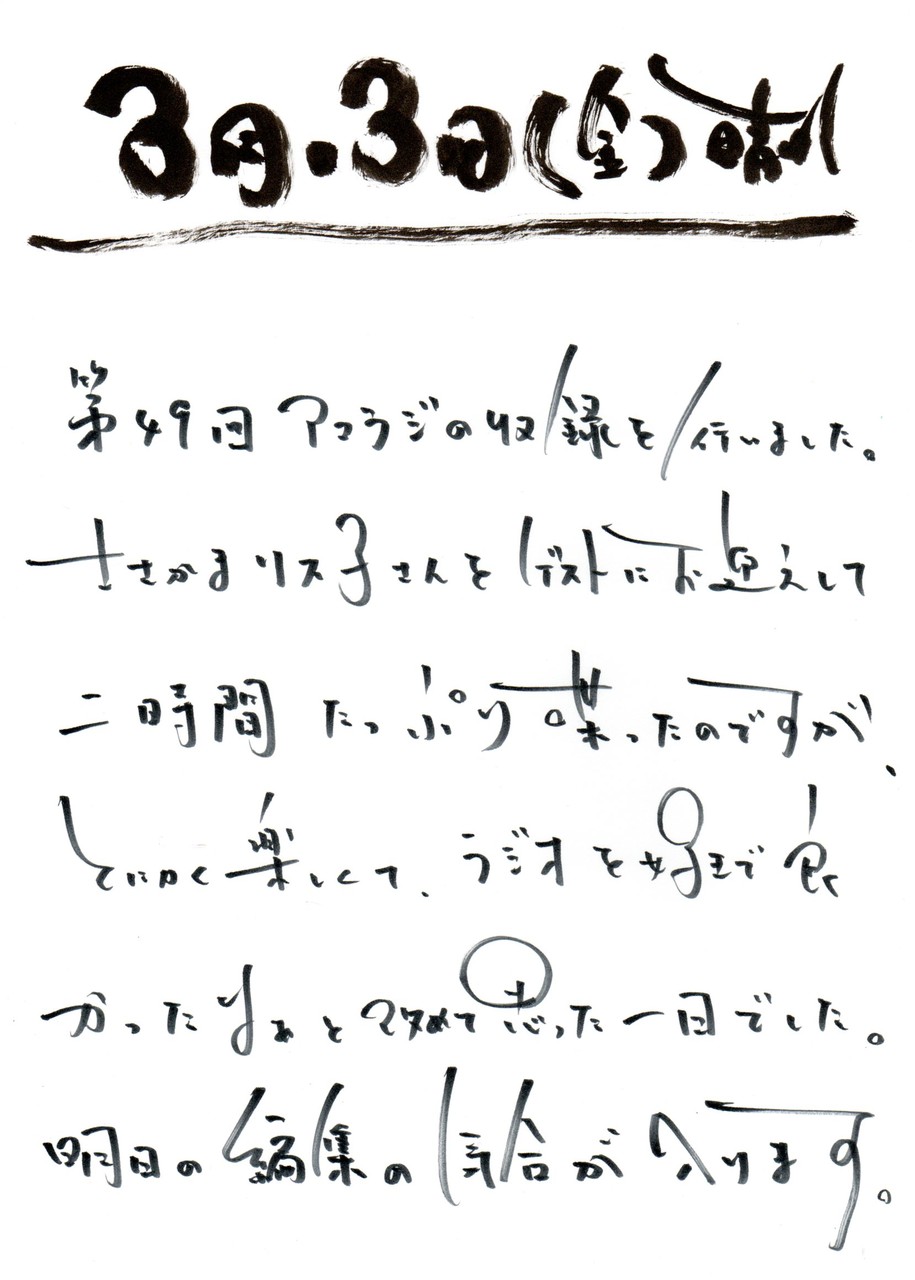 3月.3日(金)晴れ
第49回アコラジの収録を行いました。
ささかまリス子さんをゲストにお迎えして
二時間たっぷり喋ったのですが、
とにかく楽しくて、ラジオを好きで良
かったなぁと改めて思った一日でした。
明日の編集の気合が入ります。